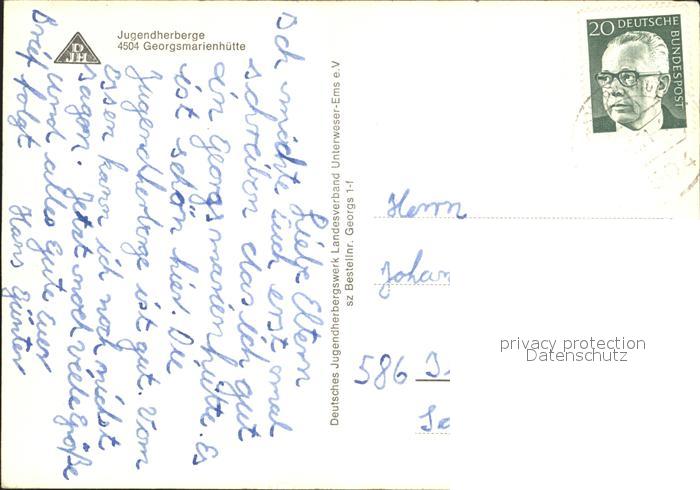 DJH
Jugendherberge
4504 Georgsmarienhütte
Liebe Eltern
Ich möchte Euch erst mal
schreiben das ich gut
in Georgsmarienhütte. Es
ist schön hier. Die
Jugendherberge ist gut. Vom
Essen kann ich noch nichst
sagen. Jetzt noch veele Größe
und alles Gute Euer
Brief folgt Hans Günter
Deutsches Jugendherbergswerk Landesverband Unterweser-Ems e.V
sz Bestellnr. Georgs 1-f
20 DEUTSCHE
BUNDESPOST
Herrn
Johan
586
privacy protection
Datenschutz